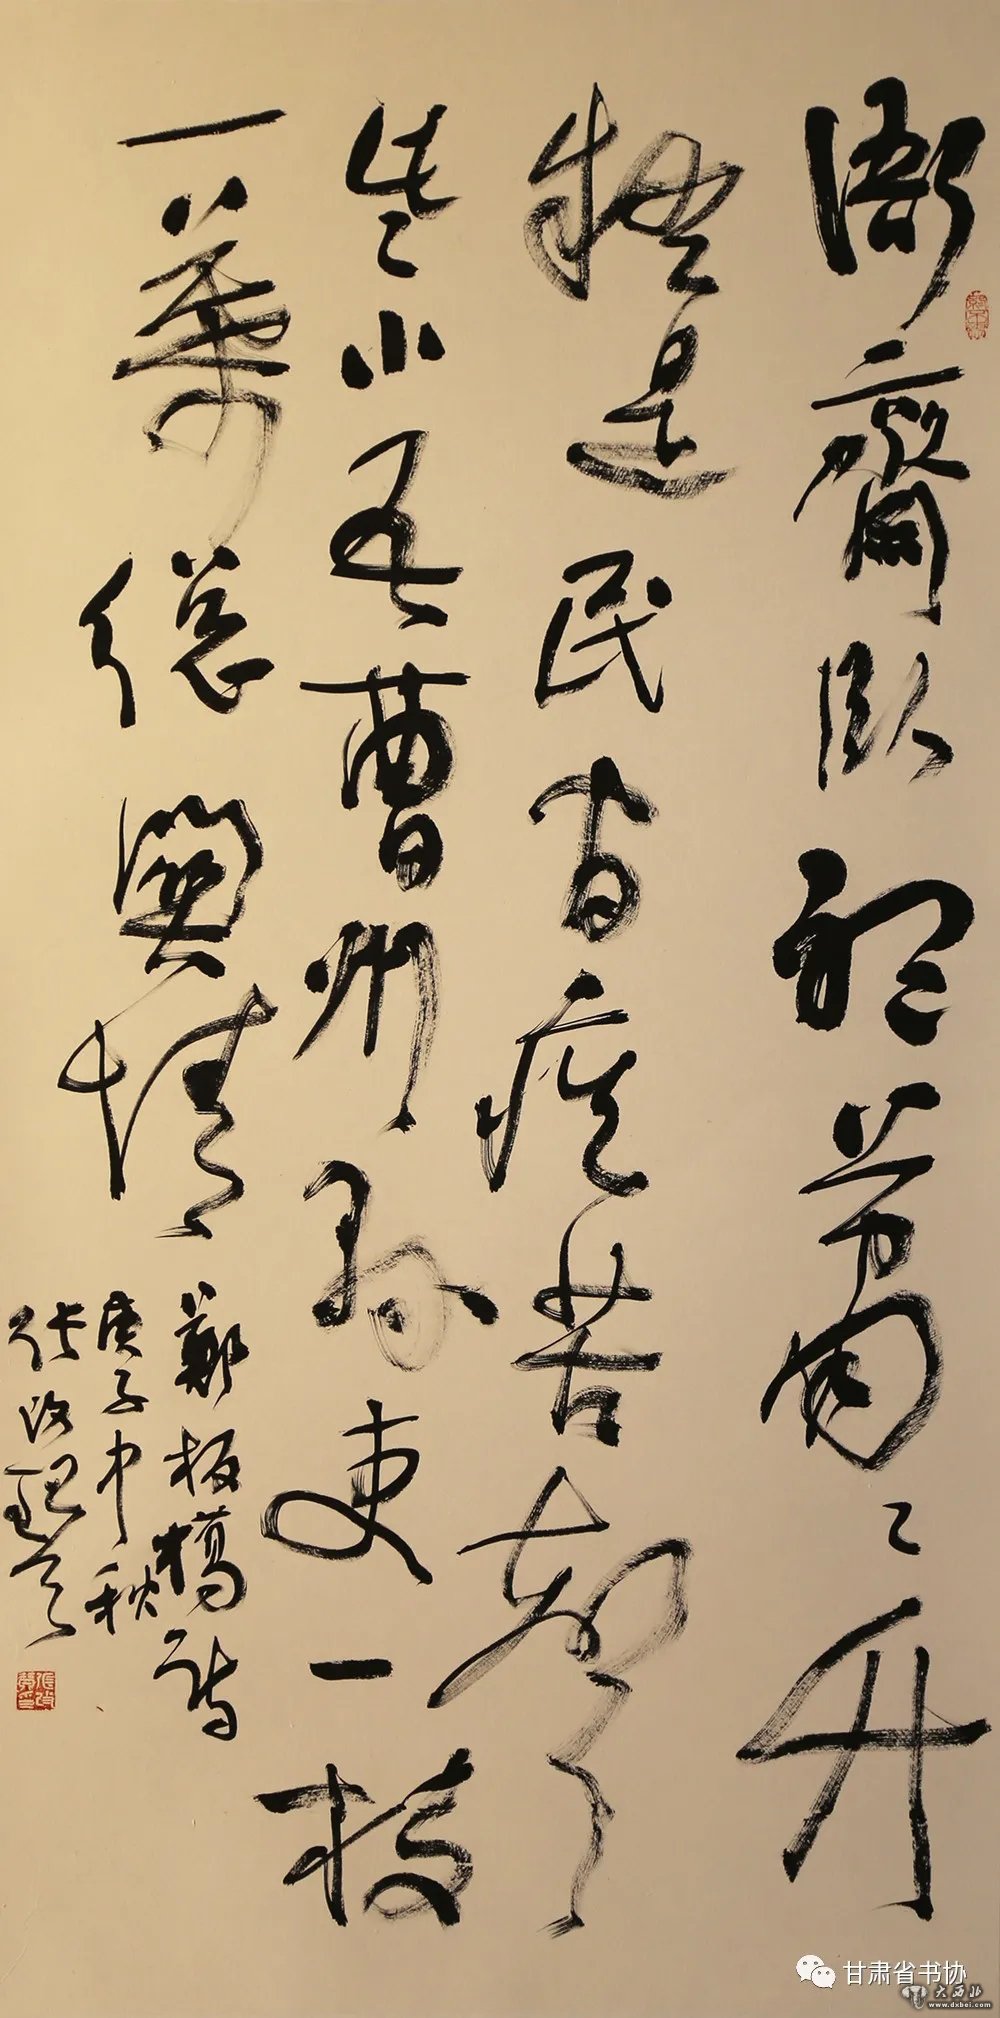 衙齋臥聽蕭〻竹
疑是民間疾苦聲
些小吾曹州縣吏一枝
一葉總關情
鄭板橋詩
庚子中秋
張改琴
張改琴印
甘肃省书协
大西北
www.dxbei.com